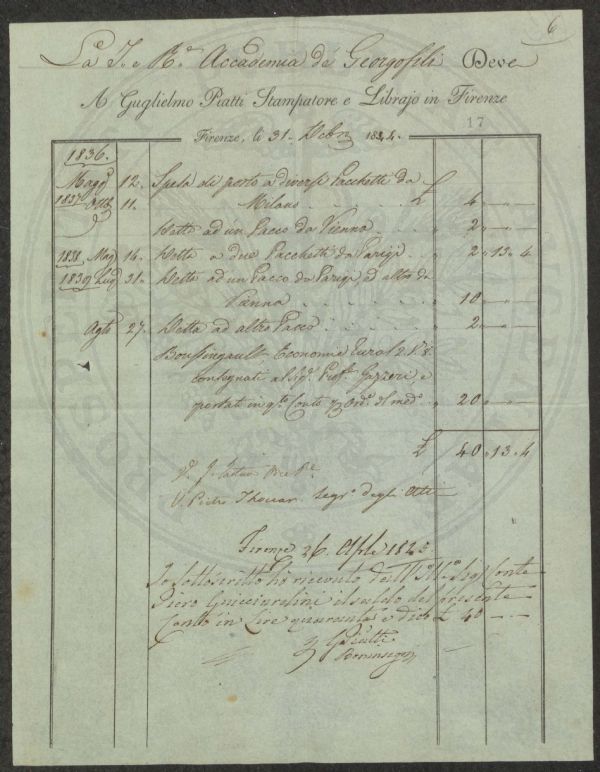 6
La I. e R.e Accademia de Georgofili Deve
A Guglielmo Piatti Stampatore e Librajo in Firenze
17
Firenze, li 31. 18
1836.
Magg. 12. Spesa di porto a diversi Pacchetti da
1837 Ott. 11. Milano £ 4 " — " —
Detto ad un Pacco da Vienna " 2 " — " —
1838. Mag 14. Detta a due Pacchetti da Parigi " 2 " 13 " 4
1839 Lug 31. Detta ad un Pacco da Parigi, e altro da
Vienna " 10 " — " —
Agto 27. Detta ad altro Pacco " 2 " — " —
Boussingault Economie Rural 2 V. 8.
consegnati al Sig. Prof. Gazzeri, e
portati in qto Conto 20 " — " —
£ 40 " 13 " 4
V. Pietro Thouar Segr. degli Atti
Firenze 26. Aple 18
Io Sottoscritto ho ricevuto dall Illmo Sig Conte
Piero Guicciardini il saldo del presente
Conto in Lire quaranta e dico £ 40 — —
Piatti